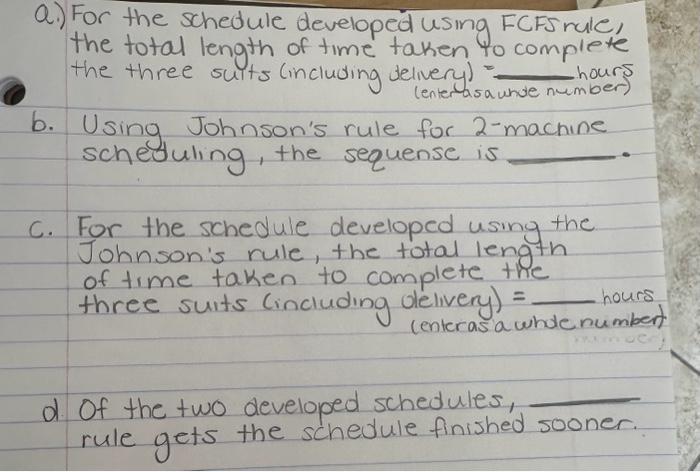 a.) For the schedule developed using FCFS rule,
the total length of time taken to complete
the three suits (including delivery) = ______ hours
(enter as a whole number)
b. Using Johnson's rule for 2-machine
scheduling, the sequense is ______.
c. For the schedule developed using the
Johnson's rule, the total length
of time taken to complete the
three suits (including delivery) = ______ hours
(enter as a whole number)
d. Of the two developed schedules, ______
rule gets the schedule finished sooner.